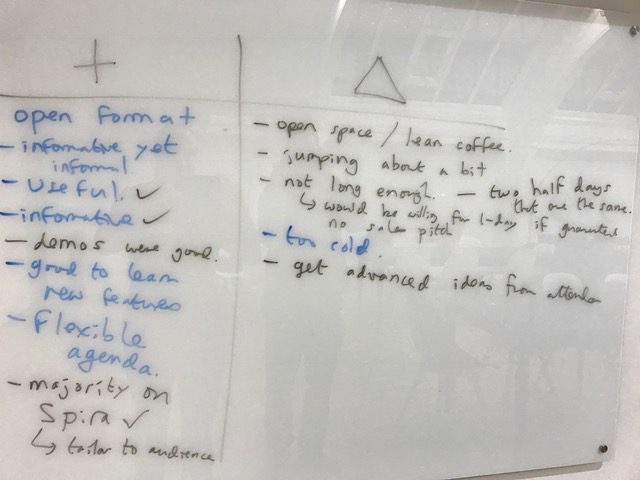 +
open format
- informative yet
informal
- useful. ✓
- informative ✓
- demos were good.
- good to learn
new features
- Flexible
agenda.
- majority on
Spira ✓
↳ tailor to audience
△
- open space / lean coffee.
- jumping about a bit
- not long enough. - two half days
that are the same.
↳ would be willing for 1-day if guaranteed
no sales pitch
- too cold.
- get advanced ideas from